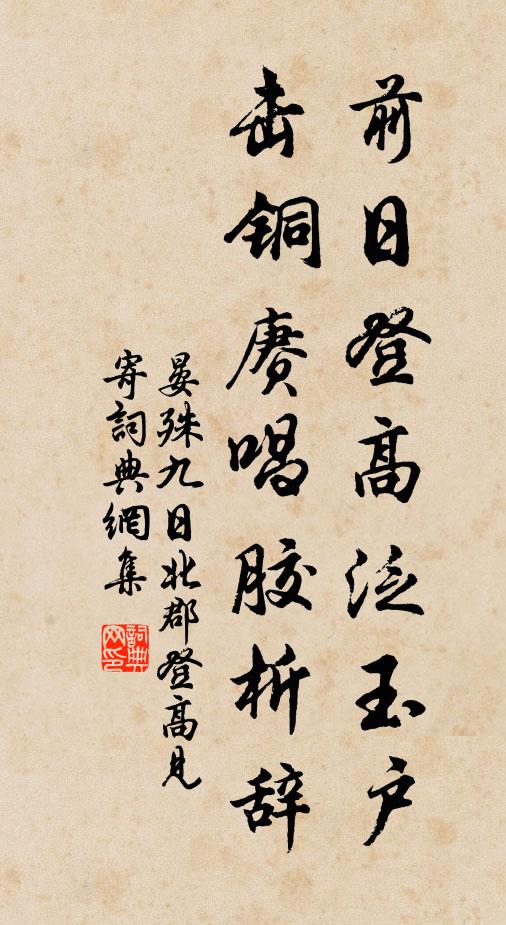 前日登高泛玉户
击铜赓唱胶析辞
晏殊九日北郡登高见
寄詞典網集
詞典网印